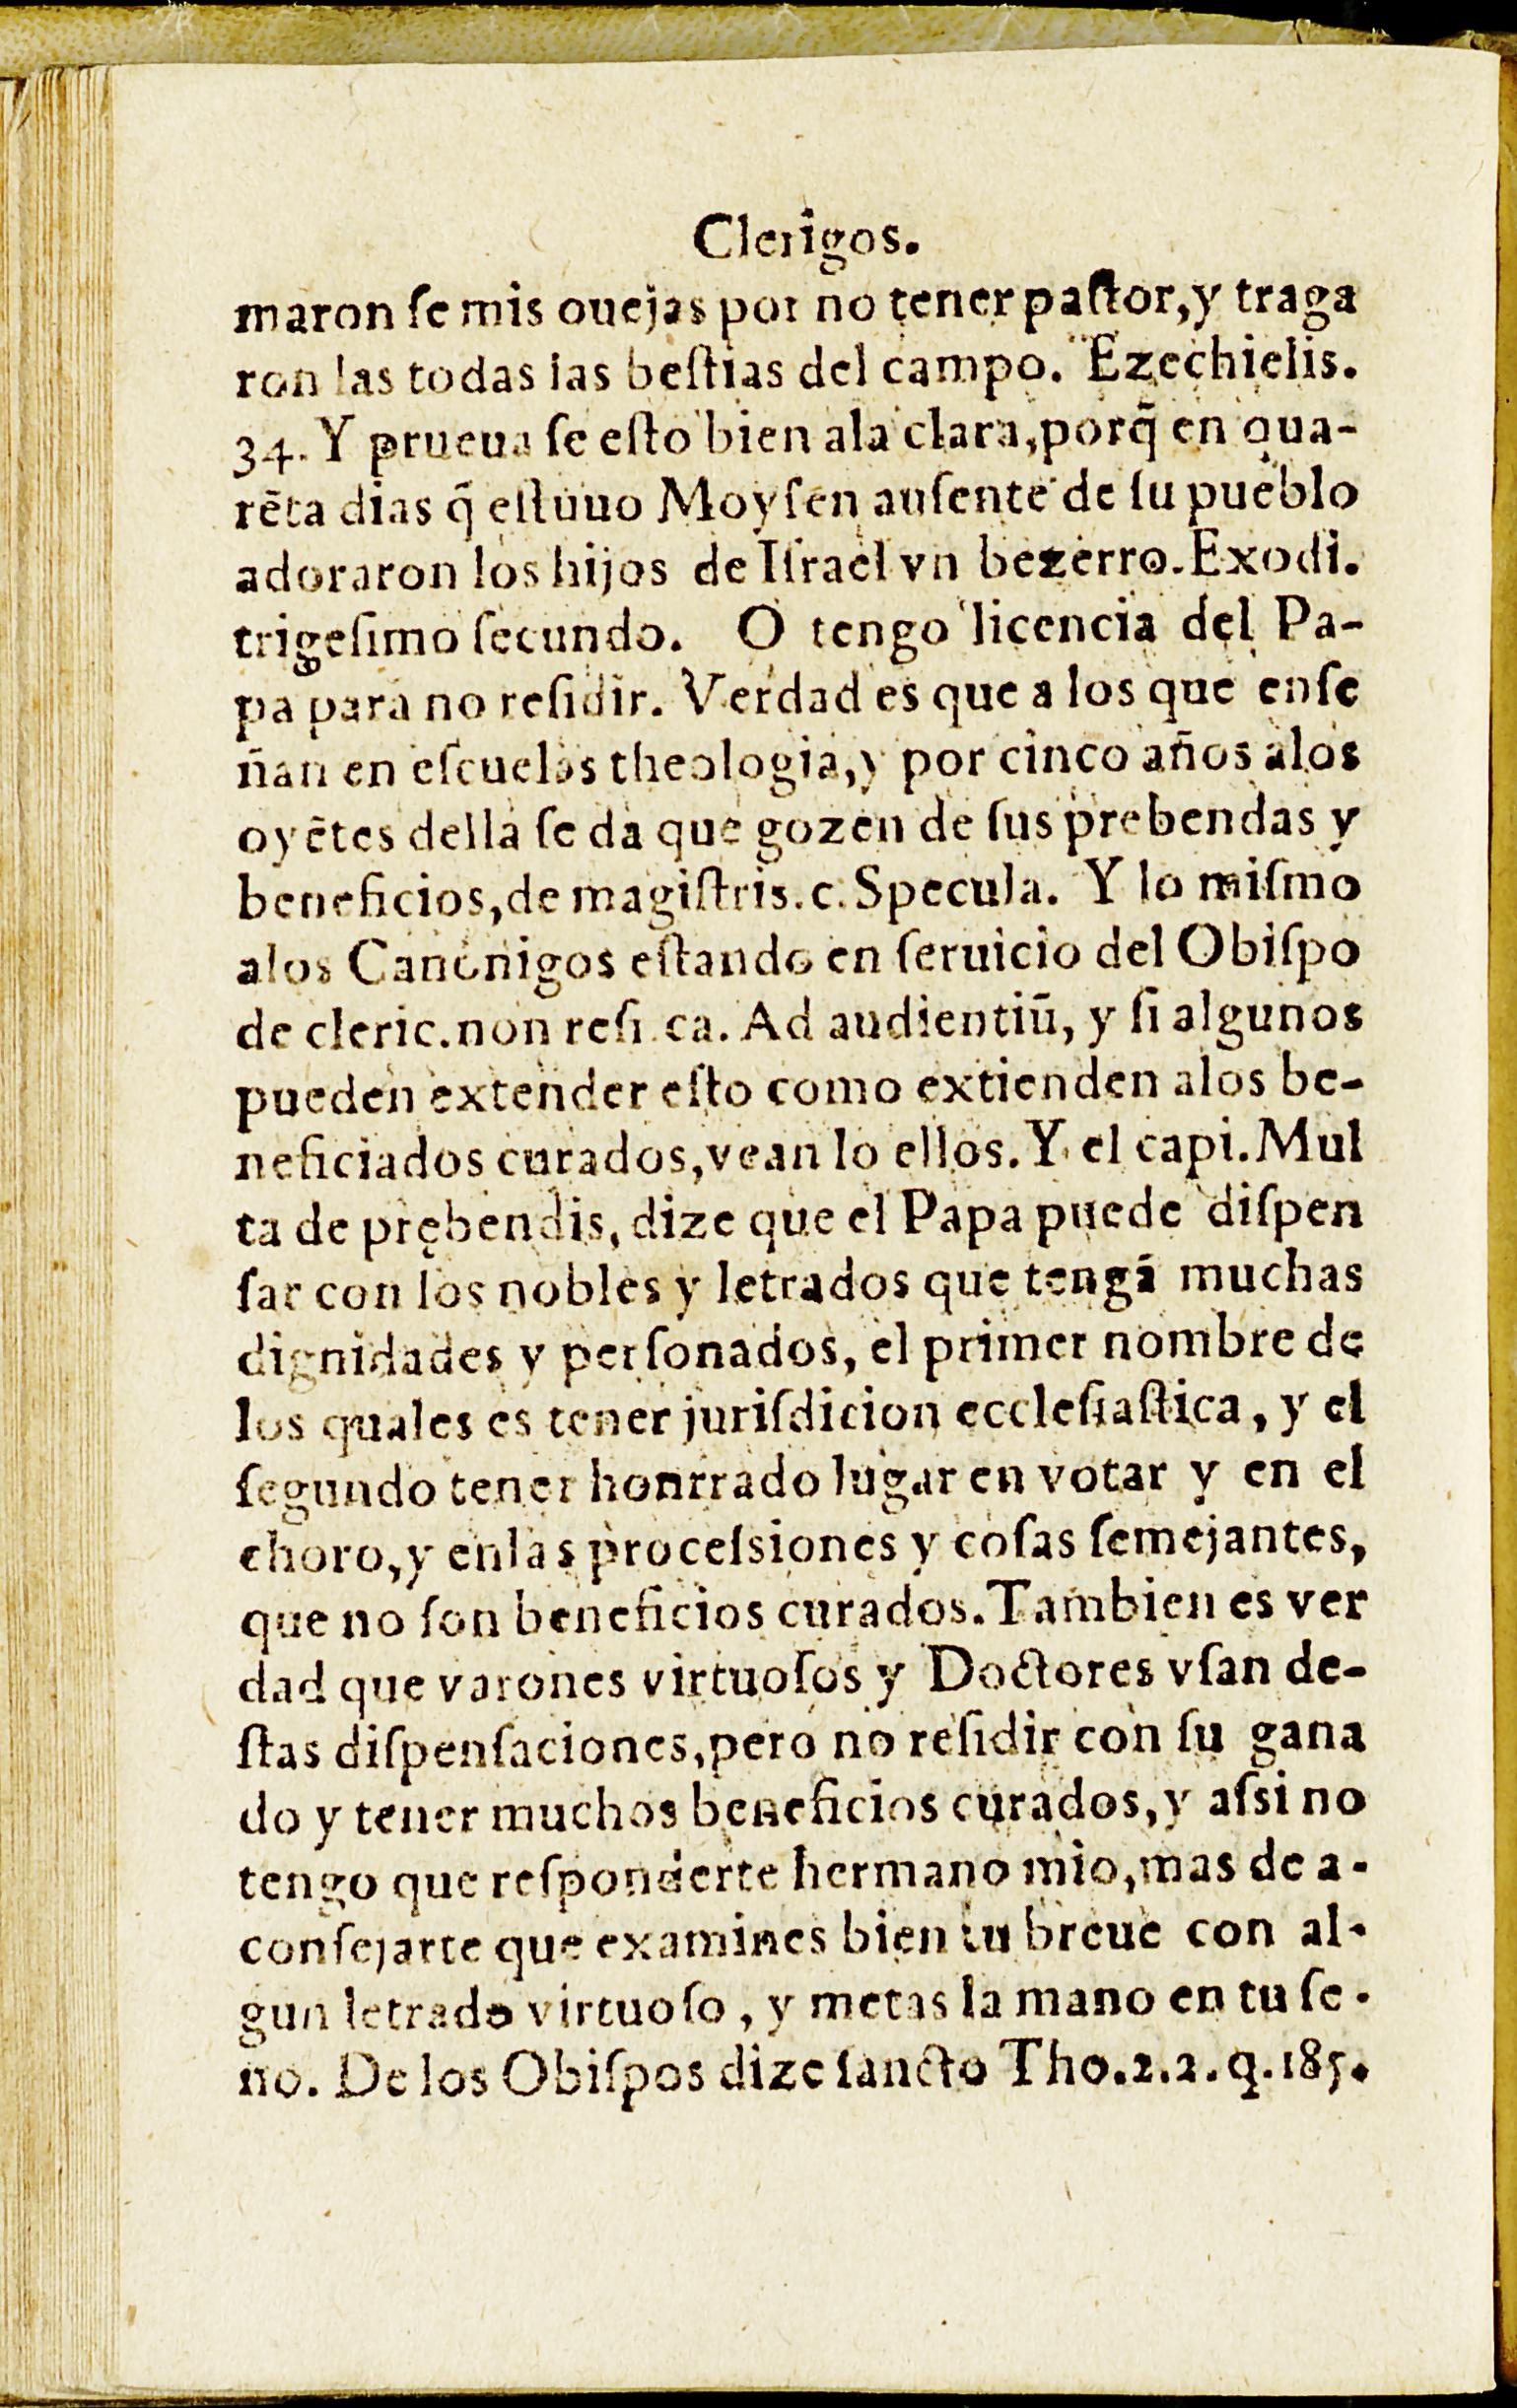 Clerigos.
maron ſe mis ouejas por no tener paſtor, y traga
ron las todas las beſtias del campo. Ezechielis.
34. Y prueua ſe eſto bien ala clara, porq̃ en qua-
rēta dias q̃ eſtuuo Moyſen auſente de ſu pueblo
adoraron los hijos de Iſrael vn bezerro. Exodi.
trigeſimo ſecundo. O tengo licencia del Pa-
pa para no reſidir. Verdad es que a los que enſe
ñan en eſcuelas theologia, y por cinco años alos
oyētes della ſe da que gozen de ſus prebendas y
beneficios, de magiſtris. c. Specula. Y lo miſmo
alos Canonigos eſtando en ſeruicio del Obiſpo
de cleric. non reſi. ca. Ad audientiū, y ſi algunos
pueden extender eſto como extienden alos be-
neficiados curados, vean lo ellos. Y el capi. Mul
ta de prębendis, dize que el Papa puede diſpen
ſar con los nobles y letrados que tengā muchas
dignidades y perſonados, el primer nombre de
los quales es tener juriſdicion eccleſiaſtica, y el
ſegundo tener honrrado lugar en votar y en el
choro, y enlas proceſsiones y coſas ſemejantes,
que no ſon beneficios curados. Tambien es ver
dad que varones virtuoſos y Doctores vſan de-
ſtas diſpenſaciones, pero no reſidir con ſu gana
do y tener muchos beneficios curados, y aſsi no
tengo que reſponderte hermano mio, mas de a-
conſejarte que examines bien tu breue con al-
gun letrado virtuoſo, y metas la mano en tu ſe-
no. De los Obiſpos dize ſancto Tho. 2. 2. q. 185.